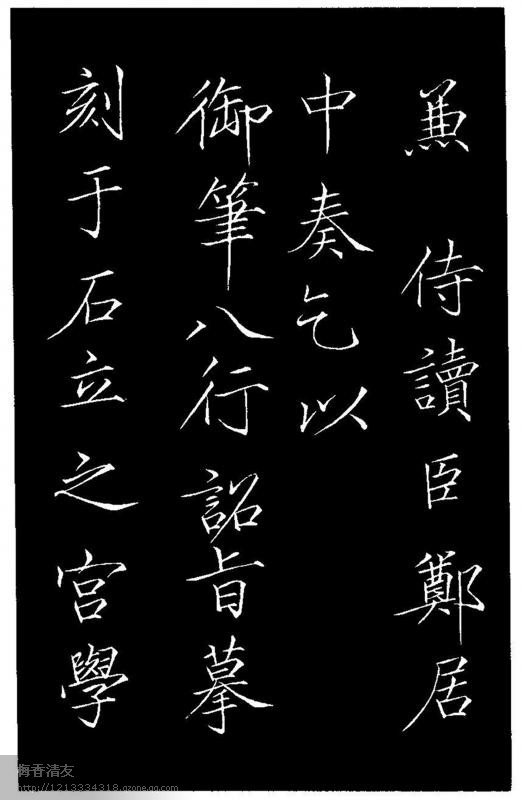 兼 侍讀臣鄭居
中奏乞以
御筆八行詔旨摹
刻于石立之宮學
梅香清友
http://1213334318.qzone.qq.com